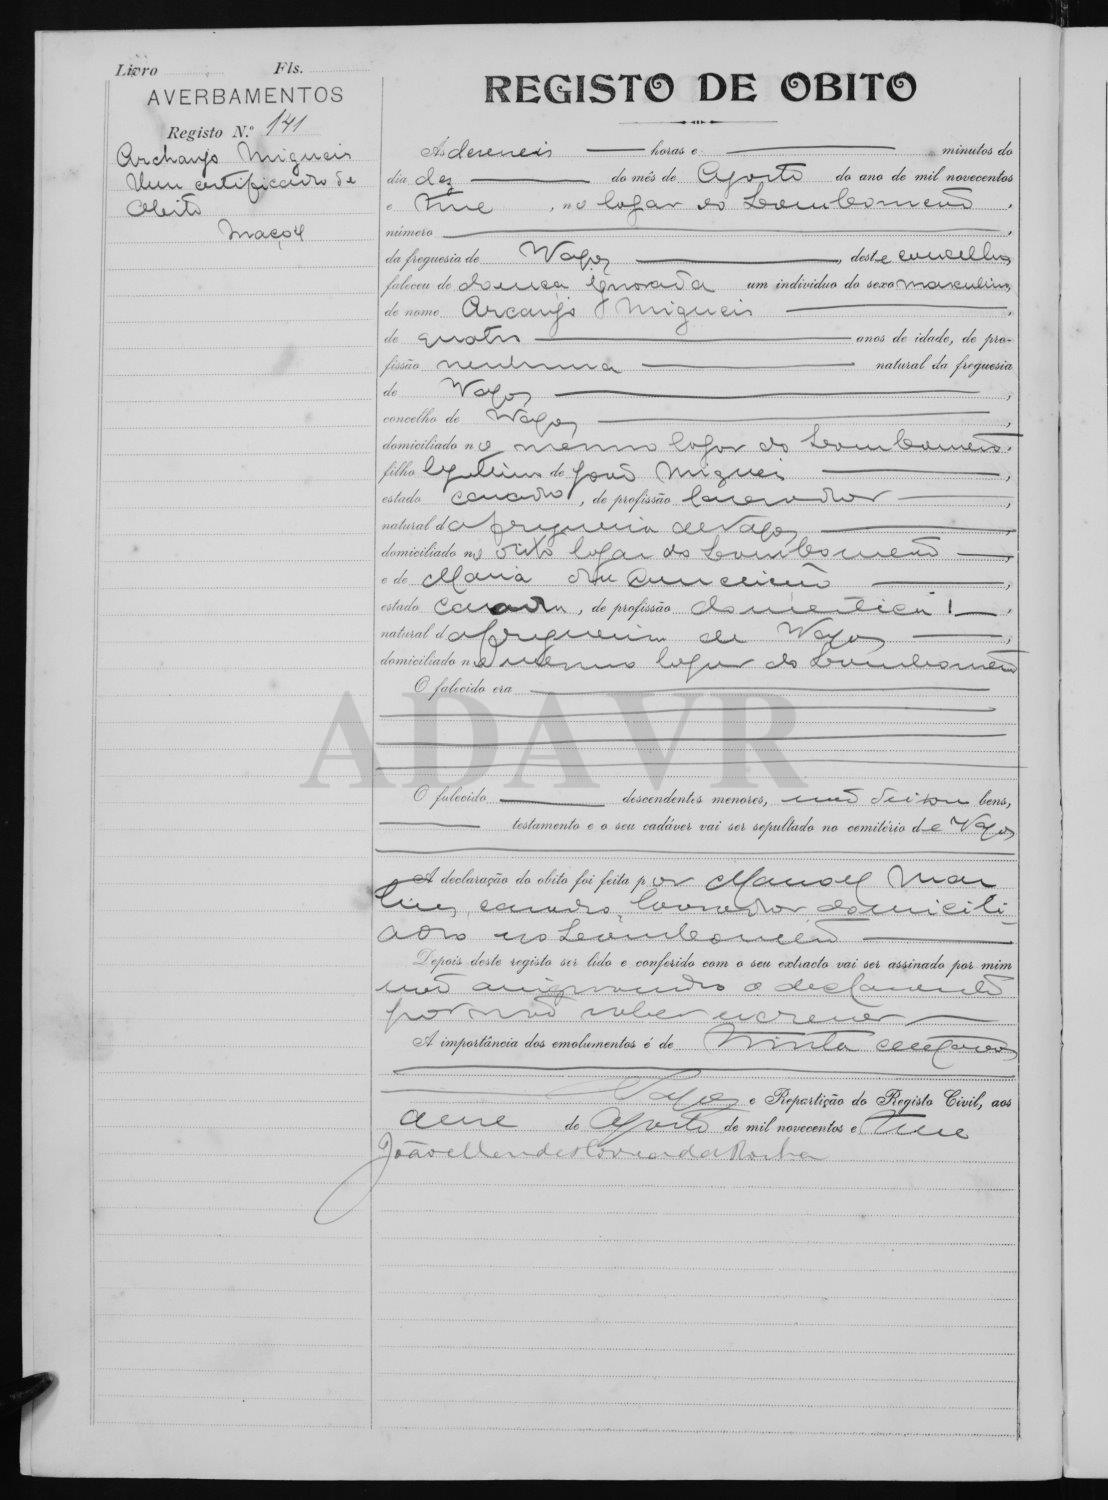 Livro Fls.
AVERBAMENTOS
Registo N.º 141
Archanjo Migueis
Um certificado de
Obito
Maçoy
REGISTO DE OBITO
Ás deseseis horas e minutos do
dia dez do mês de Agosto do ano de mil novecentos
e , no logar do Lombomeão ,
número ,
da freguesia de Vagos , deste concelho
faleceu de doença ignorada um individuo do sexo masculino,
de nome Arcanjo Migueis ,
de quatro anos de idade, de pro-
fissão nenhuma natural da freguesia
de Vagos ,
concelho de Vagos ,
domiciliado no mesmo logar do Lombomeão,
filho legitimo de João Migueis ,
estado casado, de profissão lavrador ,
natural da freguesia de Vagos ,
domiciliado no dito logar do Lombomeão ,
e de Maria da Conceição ,
estado casada, de profissão domestica ,
natural da freguesia de Vagos ,
domiciliado no mesmo logar do Lombomeão
O falecido era
ADAVR
O falecido descendentes menores, não deixou bens,
testamento e o seu cadáver vai ser sepultado no cemitério de Vagos
A declaração do obito foi feita por Manoel Mar
tins, casado, lavrador, domicili-
ado no Lombomeão
Depois deste registo ser lido e conferido com o seu extracto vai ser assinado por mim
não assignando o declarante
por não saber escrever
A importância dos emolumentos é de trinta centavos
Vagos e Repartição do Registo Civil, aos
de Agosto de mil novecentos e
João Mendes Correia da Rocha